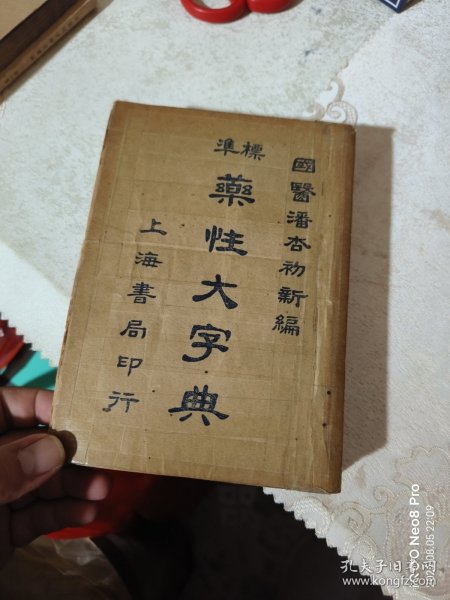 國醫潘杏初新編
標準
藥性大字典
上海書局印行
iQOO Neo8 Pro
2024.08.05 22:09
孔夫子旧书网
www.kongfz.com